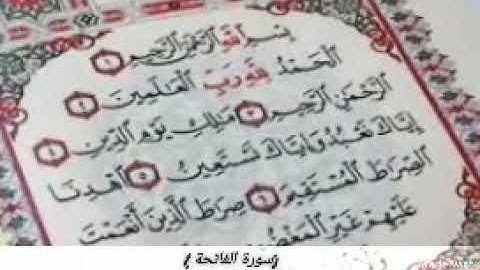 بِسْمِ اللَّهِ الرَّحْمَٰنِ الرَّحِيمِ ١
الْحَمْدُ لِلَّهِ رَبِّ الْعَالَمِينَ ٢
الرَّحْمَٰنِ الرَّحِيمِ ٣ مَالِكِ يَوْمِ الدِّينِ ٤
إِيَّاكَ نَعْبُدُ وَإِيَّاكَ نَسْتَعِينُ ٥ اهْدِنَا
الصِّرَاطَ الْمُسْتَقِيمَ ٦ صِرَاطَ الَّذِينَ أَنْعَمْتَ
عَلَيْهِمْ غَيْرِ
سورة الفاتحة